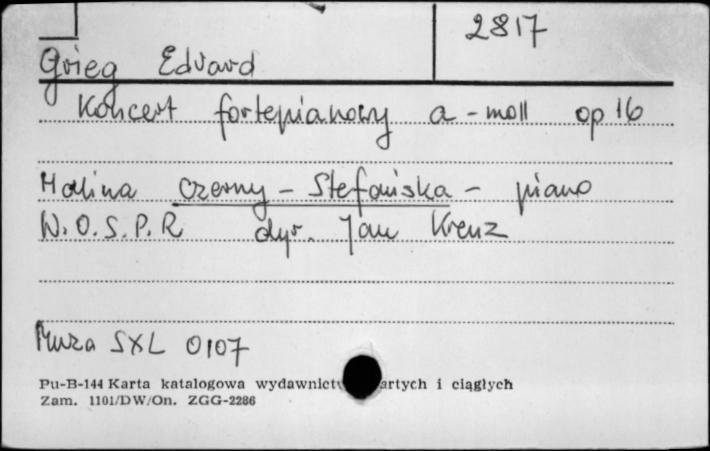 2817
Grieg Edvard
Koncert fortepianowy a-moll op 16
Halina Czerny - Stefańska - piano
W.O.S.P.R dyr. Jan Krenz
Muza SXL 0107
Pu-B-144 Karta katalogowa wydawnictw artych i ciągłych
Zam. 1101/DW/On. ZGG-2286